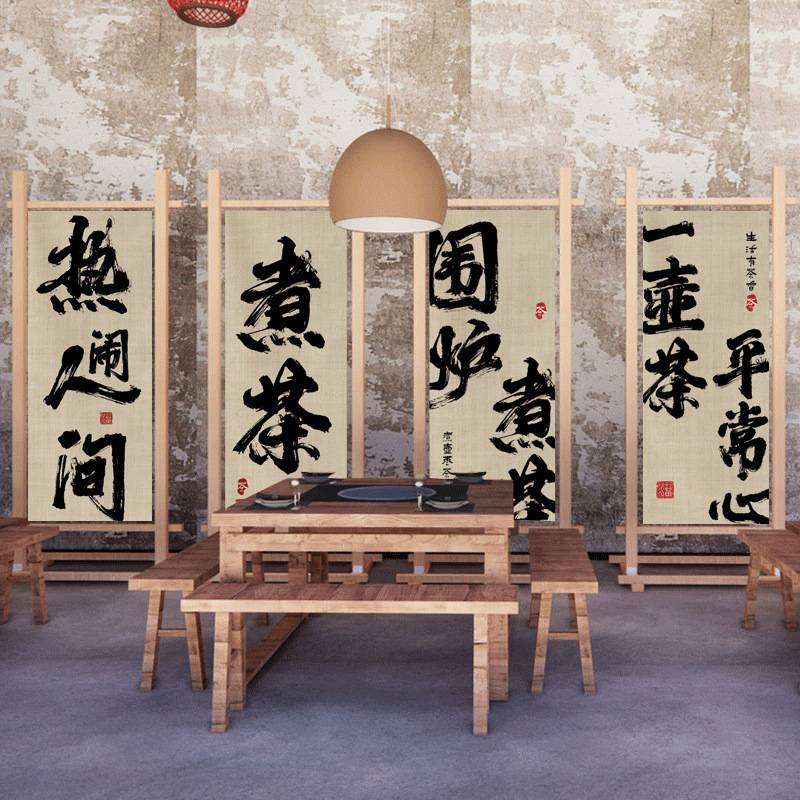 热闹人间
煮茶
围炉
煮茶
煮壶枣茶
一壶茶
平常心
生活有茶香
茶
茶
茶